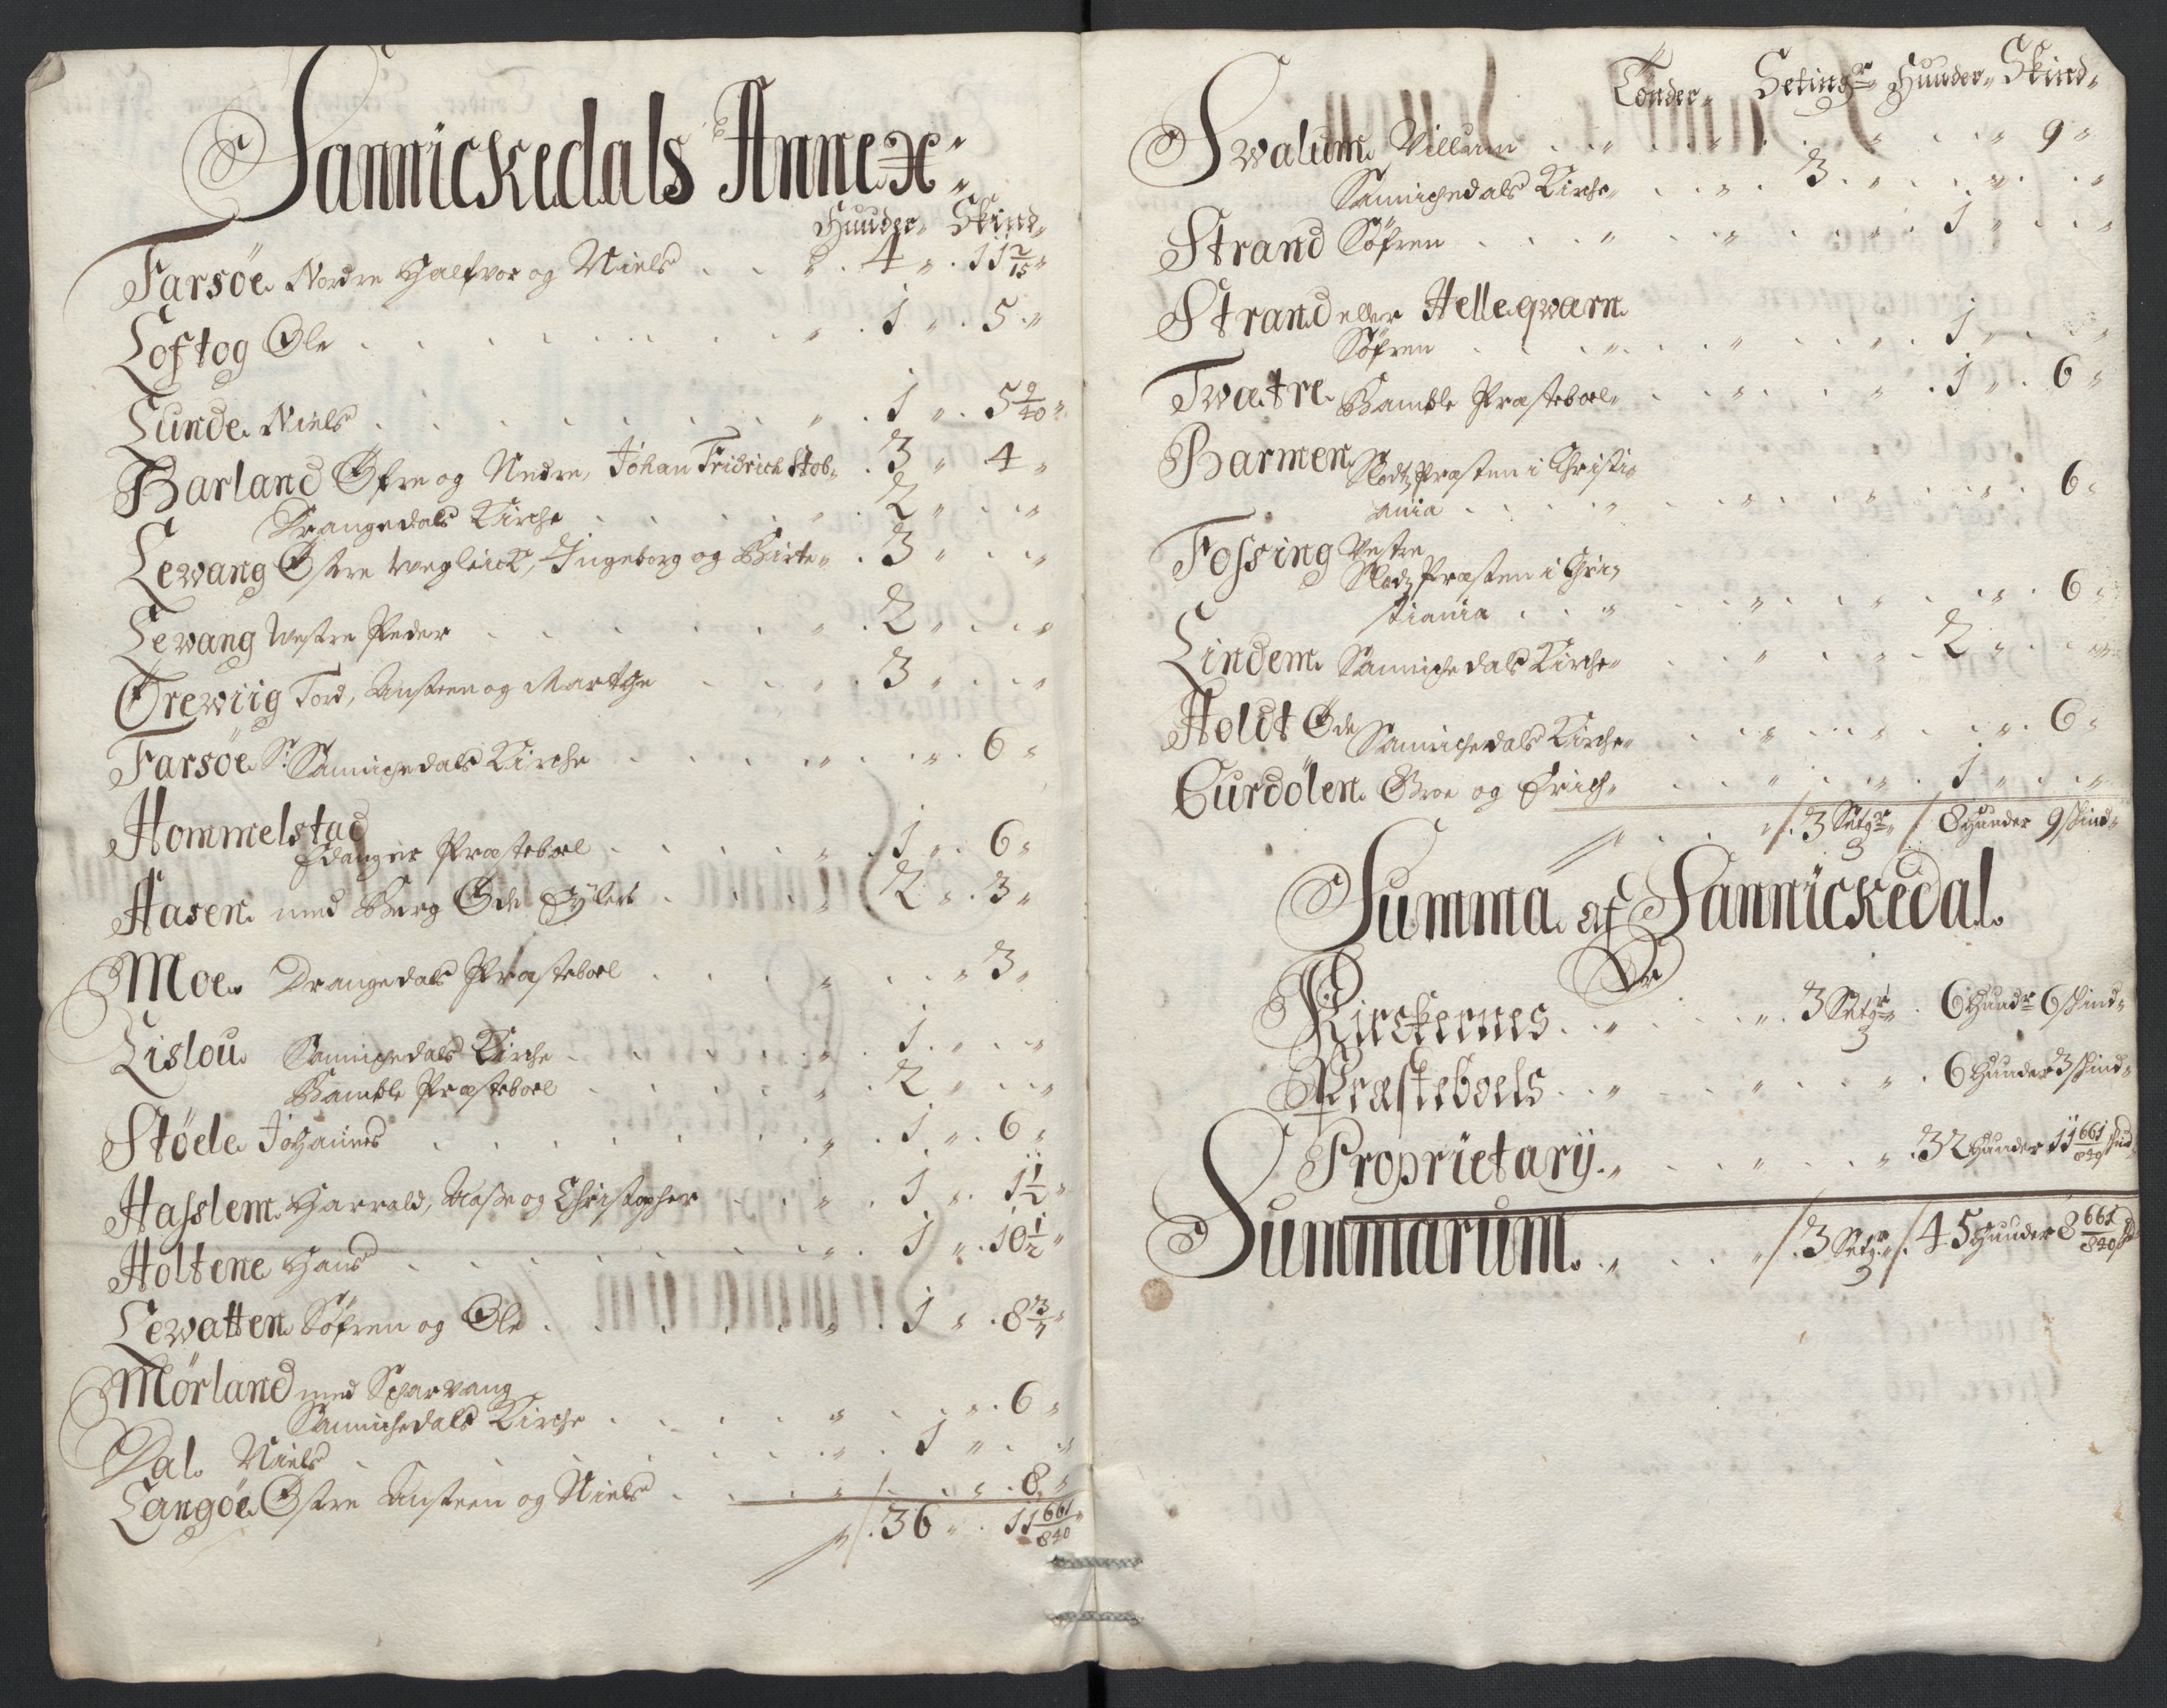 Sannickedals Annex:
Hunder„ Skind„
Farsöe Nordre Halfvor og Niels . . „ . 4 „ . 11 2/15 „
Loftog Ole . . . . . . . . „ . 1 „ . 5 . „
Lunde Niels . . . . . . . . „ . 1 „ . 5 9/40 „
Barland Øfre og Nedre, Johan Fridrich Stob„ . 3 „ 4 „
Drangedals Kirche . . . . . „ . 2 „ . . „
Lewang Østre Ingeborg og Birte„ . 3 „ . . „
Lewang Westre Peder . . . . . . „ . 2 „ . . „
Orewiig Tord, Ansteen og Marthe . . . „ . 3 „ . . „
Farsöe S: Sannichedals Kirche . . . . „ . . „ . 6 „
Hommelstad
Edanger Præsteboel . . . . . „ . 1 „ . 6 „
Hasen med Berg Øde Eÿlert . . . . „ 2 „ . 3 „
Moe Drangedals Præsteboel . . . . „ . . „ 3 „
Lislou Sannichedals Kirche . . . . . „ . 1 . „ . . „
Bamble Præsteboel . . . . . „ . 2 „ . . „
Støele Johannes . . . . . . . „ . 1 „ . 6 „
Hasslem Harrald, Aasse og Christopher . . „ . 1 „ . 1 1/2 „
Holtene Hans . . . . . . . . „ . 1 „ . 10 1/2 „
Lewatten Söfren og Ole . . . . . „ . 1 „ . 8 3/7 „
Mörland med Scharvang
Sannichedals Kirche . . . . „ . . „ . 6 „
Dal Niels . . . . . . . „ . 1 „ . . „
Langöe Østre Ansteen og Niels . . . „ . . „ . 8 „
„ /. 36 „ . 11 661/840 „
Tönder„ Seting:r„ Hunder„ Skind„
Swalum Villum . . „ . . . . „ . . „ 9 „
Sannichedals Kirche„ . . „ . 3 . „ . . „ . . „
Strand Söfren . . . „ . . „ . . . 1 „ . . „
Strand eller Helleqwarn
Söfren . . . „ . . . „ . . . „ . 1 „ . . „
Twatre Bamble Præsteboel„ . . „ . . . „ . 1 „ . 6 „
Barmen Slodtz Præsten i Christi„
ania . . . . „ . . . „ . . „ . . „ . 6 „
Fossing Vestre
Slodtz Præsten i Chri„
stiania . . . „ . . . „ . . „ . . „ . 6 „
Lindem Sannichedals Kirche„ . . „ . . „ . 2 „ . . „
Holdt Øde Sannichedals Kirche„ . . „ . . „ . . „ . 6 „
Curdölen Groe og Erich„ . . . „ . . „ . 1 „ . . „
„ . . . „ /. 3 Setg:r„ /. 8 Hunder 9 Skind„
Summa af Sannickedal
Kirckernes . . „ . . . „ . 3 Setg:r„ . 6 Hund:r 6 Skind„
Præsteboels . . „ . . . „ . . . „ . 6 Hunder 3 Skind„
Proprietarÿ . „ . . . „ . . . „ . 32 Hunder 11 661/840 Skind
Summarum . „ . . . „ /. 3 Setg:r„ /. 45 Hunder 8 661/840